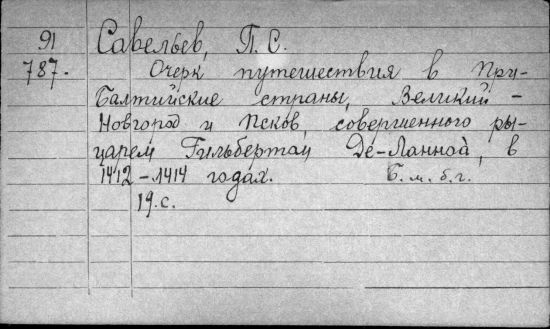 91 Савельев, П. С.
787. Очерк путешествия в При-
балтийские страны, Великий-
Новгород и Псков, совершенного ры-
царем Гильбертом Де-Ланной, в
1412-1414 годах. Б. м. б. г.
19. с.